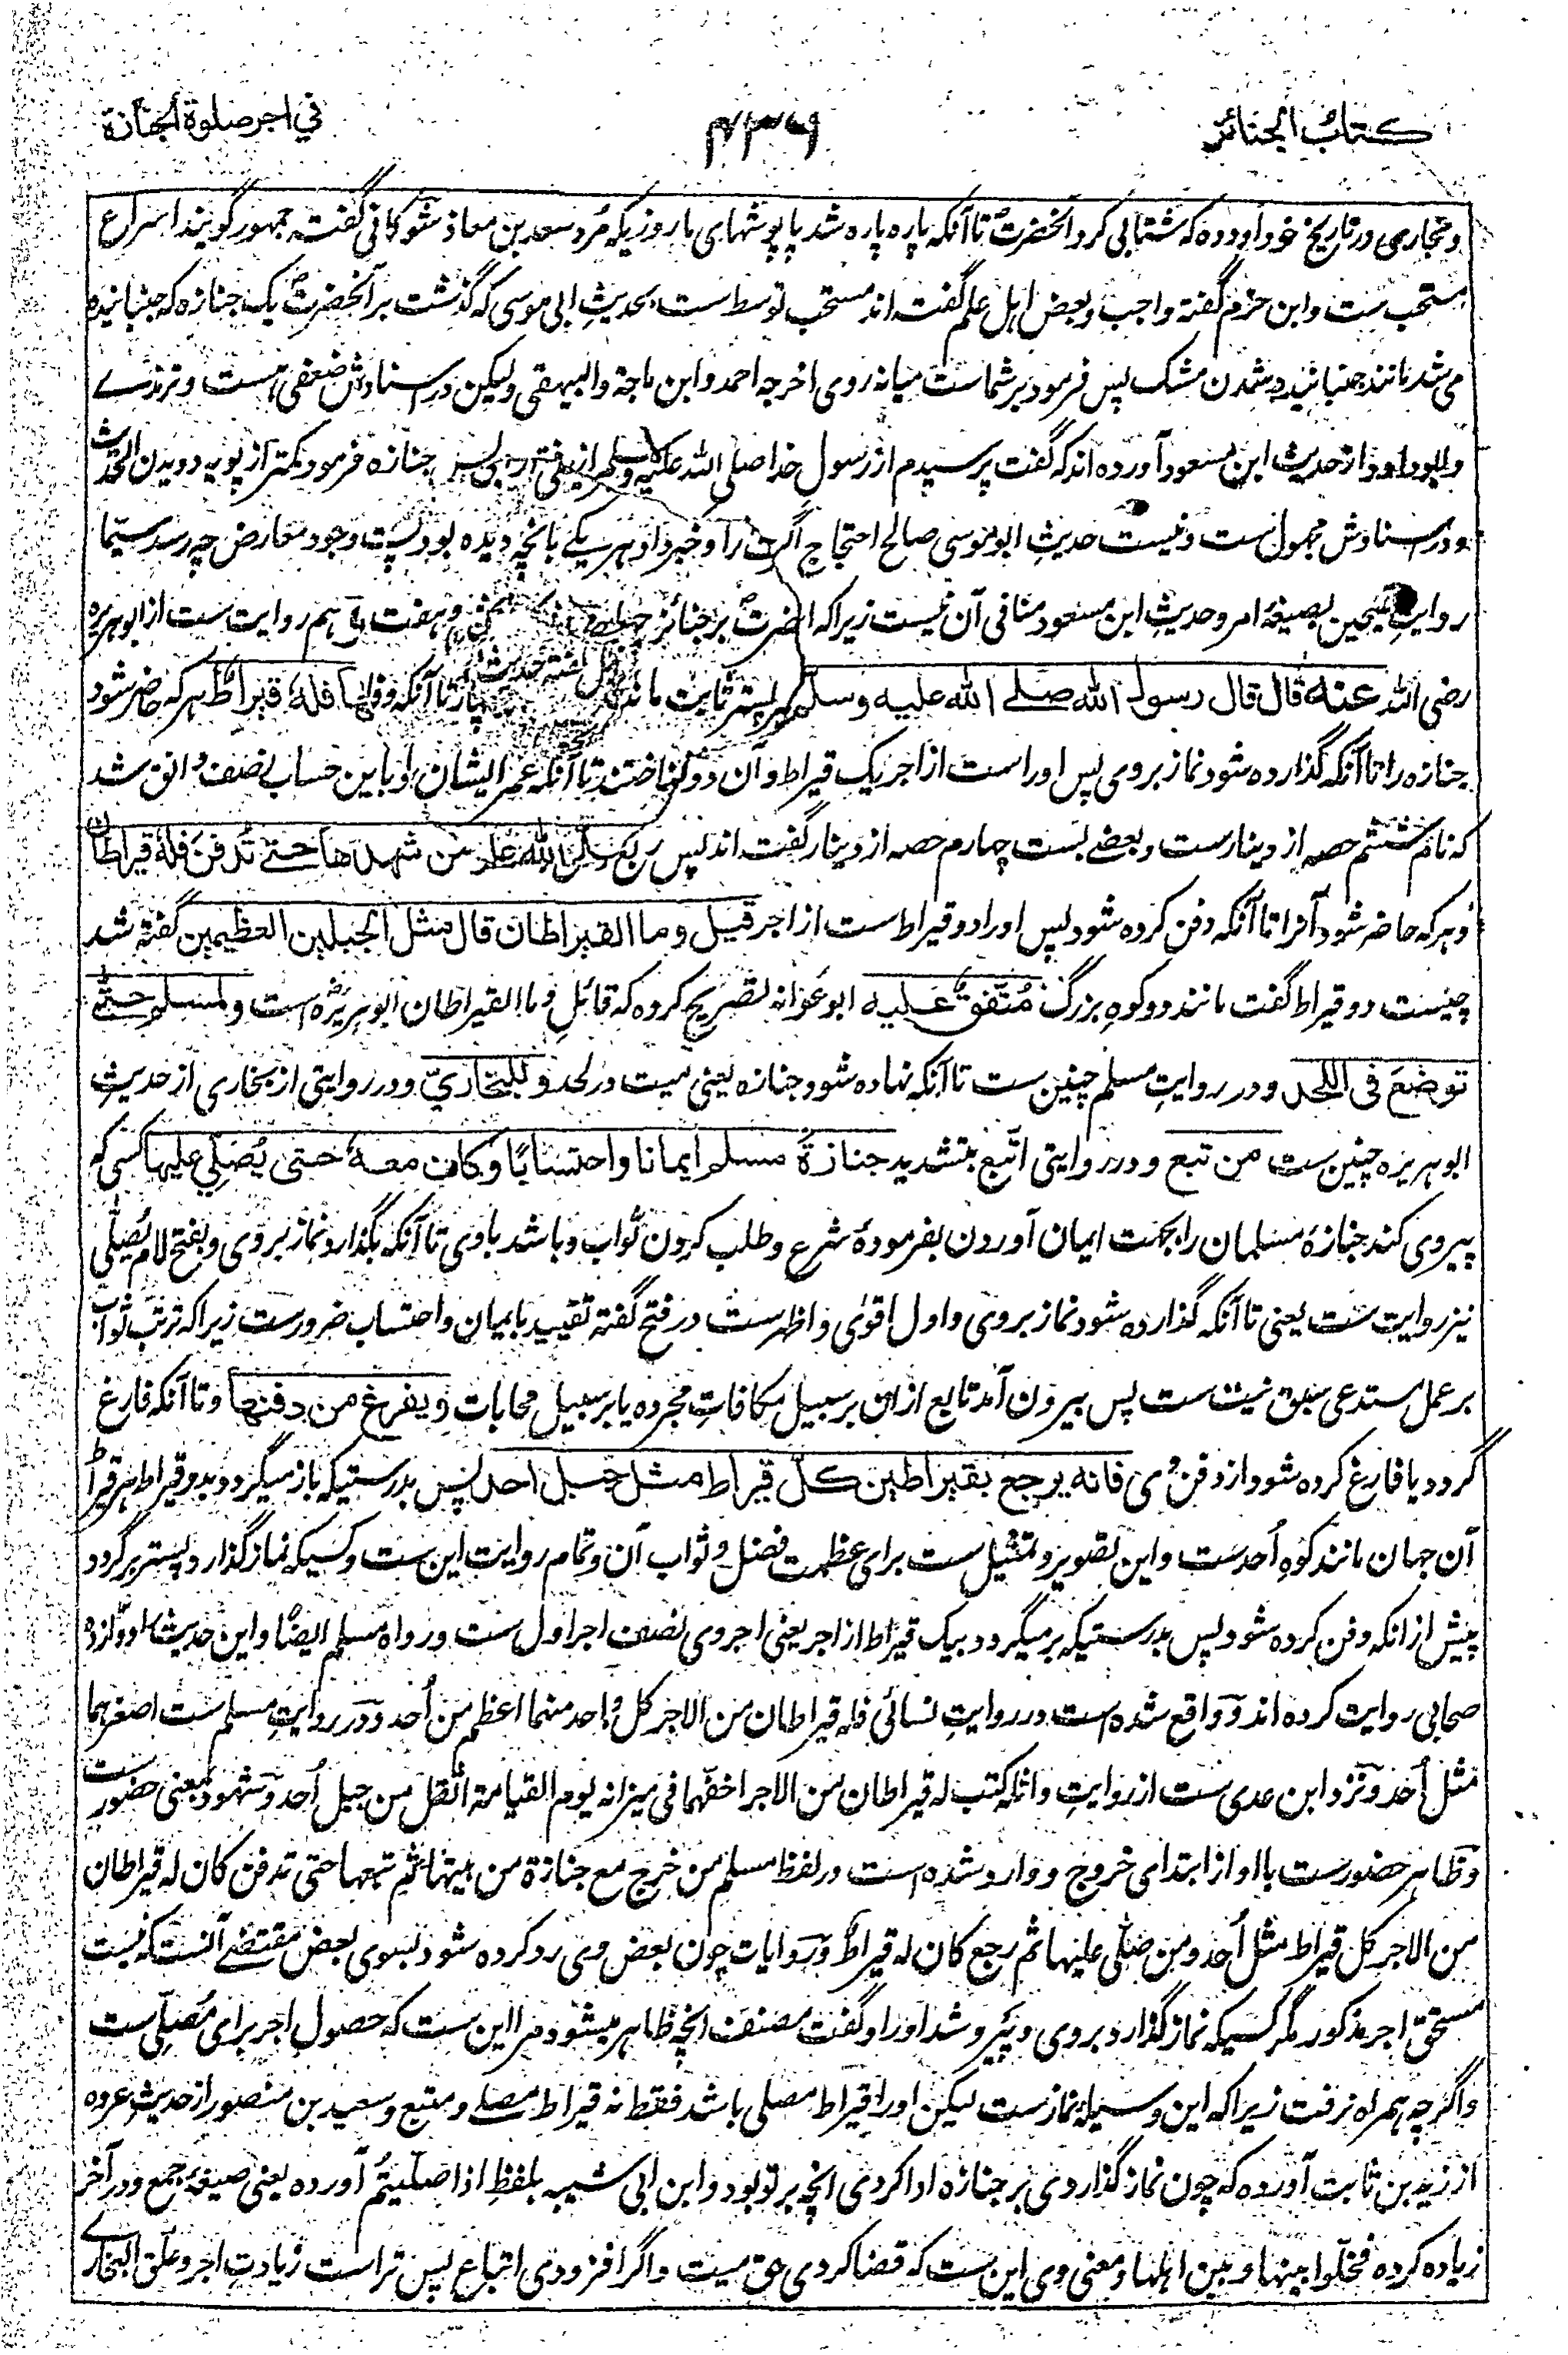 كتاب الجنائز
۴۳۶
في اجر صلوة الجنازة
وبخاری در تاریخ خود آورده که شتابی کرد آنحضرتؐ تا آنکه پاره پاره شد پاپوشهای ما روزیکه مُرد سعد بن معاذ شوکانی گفته جمهور گویند اسراع
مستحب ست وابن حزم گفته واجب وبعض اهل علم گفته اند مستحب توسط ست بحدیثِ ابی موسی که گذشت بر آنحضرتؐ یک جنازه که جنبانیده
می شد مانند جنبانیده شدن مشک پس فرمود بر شماست میانه روی اخرجه احمد وابن ماجة والبیهقی ولیکن در اسنادش ضعفی هست وترمذے
وابوداود از حدیث ابن مسعود آورده اند که گفت پرسیدم از رسول خدا صلی الله علیه وسلم از رفتار پس جنازه فرمود کمتر از پویه دویدن الحدیث
ودر اسنادش مجهول ست ونیست حدیثِ ابوموسی صالح احتجاج اگر را وخبر داد هر یکے بانچه دیده بود پست وجود معارض چه رسد سیما
روایتِ صحیحین بصیغهٔ امر وحدیثِ ابن مسعود منافی آن نیست زیراکه بر جنائز وهفت هم روایت ست از ابوهریره
رضی الله عنه قال قال رسول الله صلے الله علیه وسلم فله قیراط هر که حاضر شود
جنازه را تا آنکه گذارده شود نماز بروی پس اوراست از اجر یک قیراط وآن تا آنکه عمر ایشان را وباین حساب نصف دانق شد
که نام ششم حصه از دینارست وبعضے بست چهارم حصه از دینار گفته اند پس ربع من شهدها حتے تُدفن فله قیراطان
وهرکه حاضر شود آنرا تا آنکه دفن کرده شود پس اورا دو قیراط ست از اجر قیل وما القیراطان قال مثل الجبلین العظیمین گفته شد
چیست دو قیراط گفت مانند دو کوهِ بزرگ مُتّفقٌ علیه ابو عَوانه تصریح کرده که قائلِ وما القیراطان ابوهریره است ولمسلم حتّٰے
توضعَ فی اللحد ودر روایتِ مسلم چنین ست تا آنکه نهاده شود جنازه یعنی میت در لحد وللبخاریّ ودر روایتی از بخاری از حدیثِ
ابوهریره چنین ست من تبع ودر روایتی اتّبع بتشدید جنازةَ مسلم ایمانا واحتسابًا وکان معه حتی یُصلي علیها کسی که
پیروی کند جنازهٔ مسلمان را بجهت ایمان آوردن بفرمودهٔ شرع وطلب کردن ثواب وباشد باوی تا آنکه بگذارد نماز بروی وبفتح لام یُصلّی
نیز روایت ست یعنی تا آنکه گذارده شود نماز بروی واول اقوٰی واظهرست در فتح گفته تقیید بایمان واحتساب ضرورست زیراکه ترتب ثواب
بر عمل مستدعی سبق نیت ست پس بیرون آمد تابع ازان بر سبیل مکافاتِ مجرده یا بر سبیل محابات ویفرغ من دفنها وتا آنکه فارغ
گردد یا فارغ کرده شود از دفنِ وی فانه یرجع بقیراطین کلّ قیراط مثل جبل احد پس بدرستیکه باز میگردد بدو قیراط هر قیراط
آن جهان مانند کوهِ اُحدست واین تصویر وتمثیل ست برای عظمت فضل وثواب آن وتمام روایت این ست وکسیکه نماز گذارد پستر برگردد
پیش ازانکه دفن کرده شود پس بدرستیکه برمیگردد بیک قیراط از اجر یعنی اجر وی نصف اجر اول ست ورواه مسلم ایضًا واین حدیث را دوازده
صحابی روایت کرده اند وواقع شده است در روایتِ نسائی فله قیراطان من الاجر کل واحد منهما اعظم من اُحد ودر روایتِ مسلم ست اصغرهما
مثل اُحد ونزد ابن عدی ست از روایتِ واثله کتب له قیراطان من الاجر اخفّهما فی میزانه یوم القیامة اثقل من جبل اُحد وشهود بمعنی حضور ست
وظاهر حضورست با او از ابتدای خروج ووارد شده است در لفظ مسلم من خرج مع جنازة من بیتها ثم تبعها حتی تدفن کان له قیراطان
من الاجر کل قیراط مثل اُحد ومن صلّی علیها ثم رجع کان له قیراط وروایات چون بعض وی رد کرده شود بسوی بعض مقتضے آنست که نیست
مستحق اجر مذکور مگر کسیکه نماز گذارد بروی وپَیرو شد اورا وگفت مصنف انچه ظاهر میشود مرا این ست که حصولِ اجر برای مُصلّی ست
واگرچه همراه نرفت زیراکه این وسیلهٔ نمازست لیکن اورا قیراط مصلی باشد فقط نه قیراط مصلے ومتبع وسعید بن منصور از حدیث عروه
از زید بن ثابت آورده که چون نماز گذاردی بر جنازه ادا کردی انچه بر تو بود وابن ابی شیبه بلفظِ اذا صلّیتُم آورده یعنی صیغهٔ جمع ودر آخر
زیاده کرده فخلّوا بینها وبین اهلها ومعنی وی این ست که قضا کردی حق میت واگر افزودی اتباع پس تراست زیادتِ اجر وعلّق البخارے